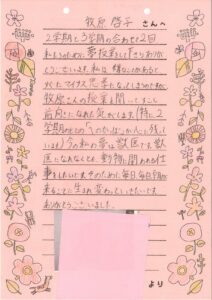 牧原 啓子 さんへ
2学期と3学期の合わせて2回
私たちのために夢授業をして下さりありが
とうございます。私は嫌なことがある
とマイナス思考になってしまうのですが
牧原さんの授業を聞いてすこし
前向きになれた気がします。特に2
学期の
います。今の私の夢は獣医です。獣医
になれなくても、動物に関われる仕
事をしたいです。そのために毎日毎日勉強
生まれ変わっていきたいです
ありがとうございました。
より